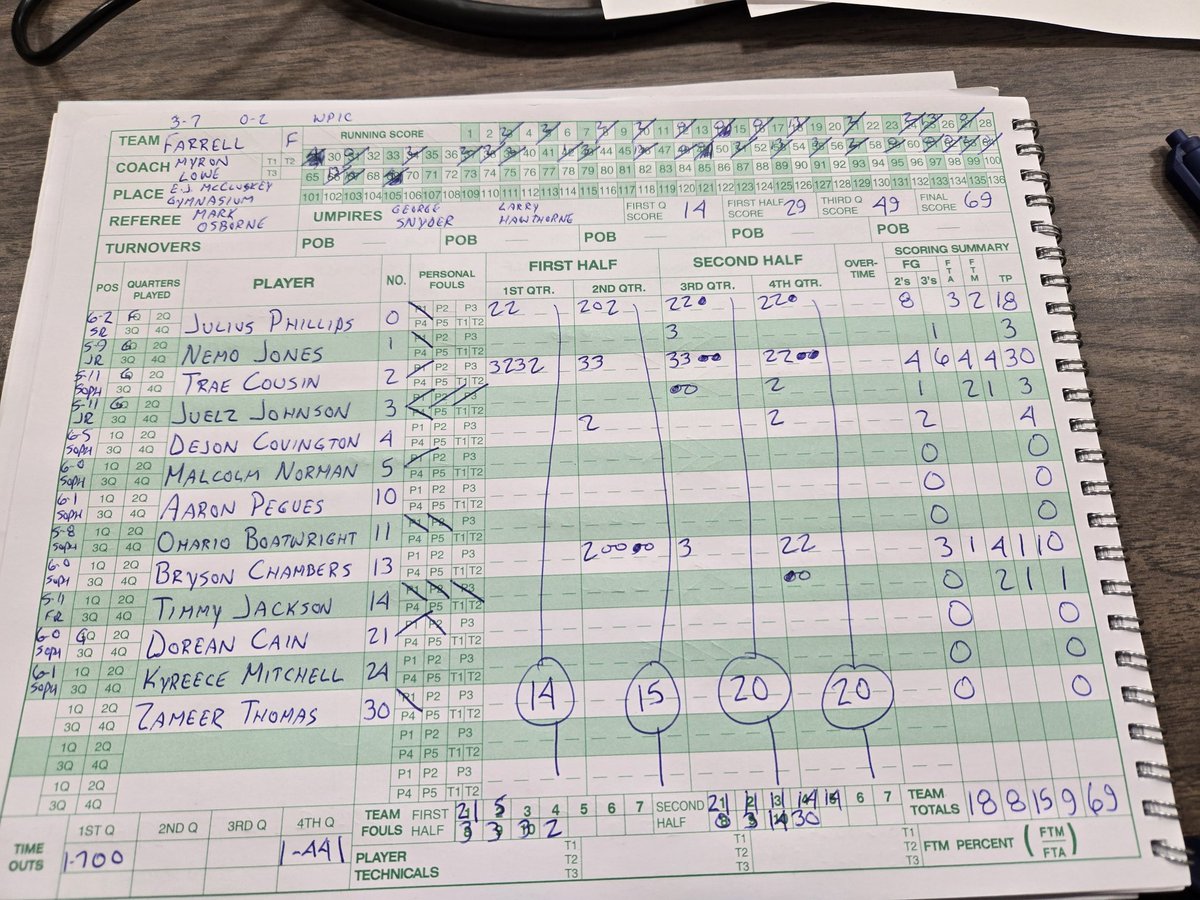 3-7 0-2 WPIC
TEAM FARRELL F RUNNING SCORE 1 2 3 4 5 6 7 8 9 10 11 12 13 14 15 16 17 18 19 20 21 22 23 24 25 26 27 28
COACH MYRON LOWE T1 T2 T3 29 30 31 32 33 34 35 36 37 38 39 40 41 42 43 44 45 46 47 48 49 50 51 52 53 54 55 56 57 58 59 60 61 62 63 64
65 66 67 68 69 70 71 72 73 74 75 76 77 78 79 80 81 82 83 84 85 86 87 88 89 90 91 92 93 94 95 96 97 98 99 100
PLACE E.J. McCLUSKEY GYMNASIUM 101 102 103 104 105 106 107 108 109 110 111 112 113 114 115 116 117 118 119 120 121 122 123 124 125 126 127 128 129 130 131 132 133 134 135 136
REFEREE MARK OSBORNE UMPIRES GEORGE SNYDER LARRY HAWTHORNE FIRST Q SCORE 14 FIRST HALF SCORE 29 THIRD Q SCORE 49 FINAL SCORE 69
TURNOVERS POB — POB — POB — POB — POB —
POS QUARTERS PLAYED PLAYER NO. PERSONAL FOULS FIRST HALF SECOND HALF OVER-TIME SCORING SUMMARY
1ST QTR. 2ND QTR. 3RD QTR. 4TH QTR. FG 2's 3's FTA FTM TP
6-2 SR F 2Q 3Q 4Q JULIUS PHILLIPS 0 P1 P2 P3 P4 P5 T1 T2 22 202 220 220 8 3 2 18
5-9 JR G 2Q 3Q 4Q NEMO JONES 1 P1 P2 P3 P4 P5 T1 T2 3 1 3
5-11 SOPH G 2Q 3Q 4Q TRAE COUSIN 2 P1 P2 P3 P4 P5 T1 T2 3232 33 3300 2200 4 6 4 4 30
5-11 JR G 2Q 3Q 4Q JUELZ JOHNSON 3 P1 P2 P3 P4 P5 T1 T2 00 2 1 2 1 3
6-5 SOPH 1Q 2Q 3Q 4Q DEJON COVINGTON 4 P1 P2 P3 P4 P5 T1 T2 2 2 2 4
6-0 SOPH 1Q 2Q 3Q 4Q MALCOLM NORMAN 5 P1 P2 P3 P4 P5 T1 T2 0 0
6-1 SOPH 1Q 2Q 3Q 4Q AARON PEGUES 10 P1 P2 P3 P4 P5 T1 T2 0 0
5-8 SOPH 1Q 2Q 3Q 4Q OMARIO BOATWRIGHT 11 P1 P2 P3 P4 P5 T1 T2 0 0
6-0 SOPH 1Q 2Q 3Q 4Q BRYSON CHAMBERS 13 P1 P2 P3 P4 P5 T1 T2 20000 3 22 3 1 4 1 10
5-11 FR 1Q 2Q 3Q 4Q TIMMY JACKSON 14 P1 P2 P3 P4 P5 T1 T2 00 0 2 1 1
6-0 SOPH G 2Q 3Q 4Q DOREAN CAIN 21 P1 P2 P3 P4 P5 T1 T2 0 0
6-1 SOPH 1Q 2Q 3Q 4Q KYREECE MITCHELL 24 P1 P2 P3 P4 P5 T1 T2 0 0
1Q 2Q 3Q 4Q ZAMEER THOMAS 30 P1 P2 P3 P4 P5 T1 T2 14 15 20 20 0 0
1Q 2Q 3Q 4Q P1 P2 P3 P4 P5 T1 T2
1Q 2Q 3Q 4Q P1 P2 P3 P4 P5 T1 T2
TIME OUTS 1ST Q 2ND Q 3RD Q 4TH Q TEAM FOULS FIRST HALF 21 5 3 4 5 6 7 SECOND HALF 21 11 13 14 14 6 7 TEAM TOTALS 18 8 15 9 69
1-700 1-441 3 3 3 2 0 3 14 30
PLAYER TECHNICALS T1 T2 T3 T1 T2 T3 T1 T2 T3 FTM PERCENT (FTM/FTA)